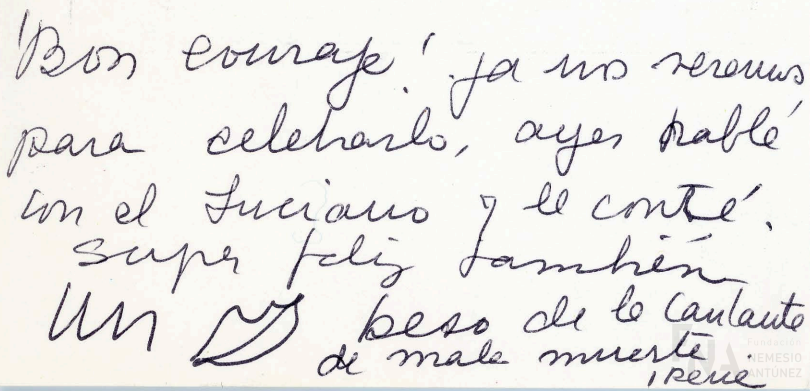 ¡Bon courage! ya nos veremos
para celebrarlo, ayer hablé
con el Luciano y le conté.
super feliz también
Un beso de la Cantante
de mala muerte.
Irene
Fundación
NEMESIO
ANTÚNEZ